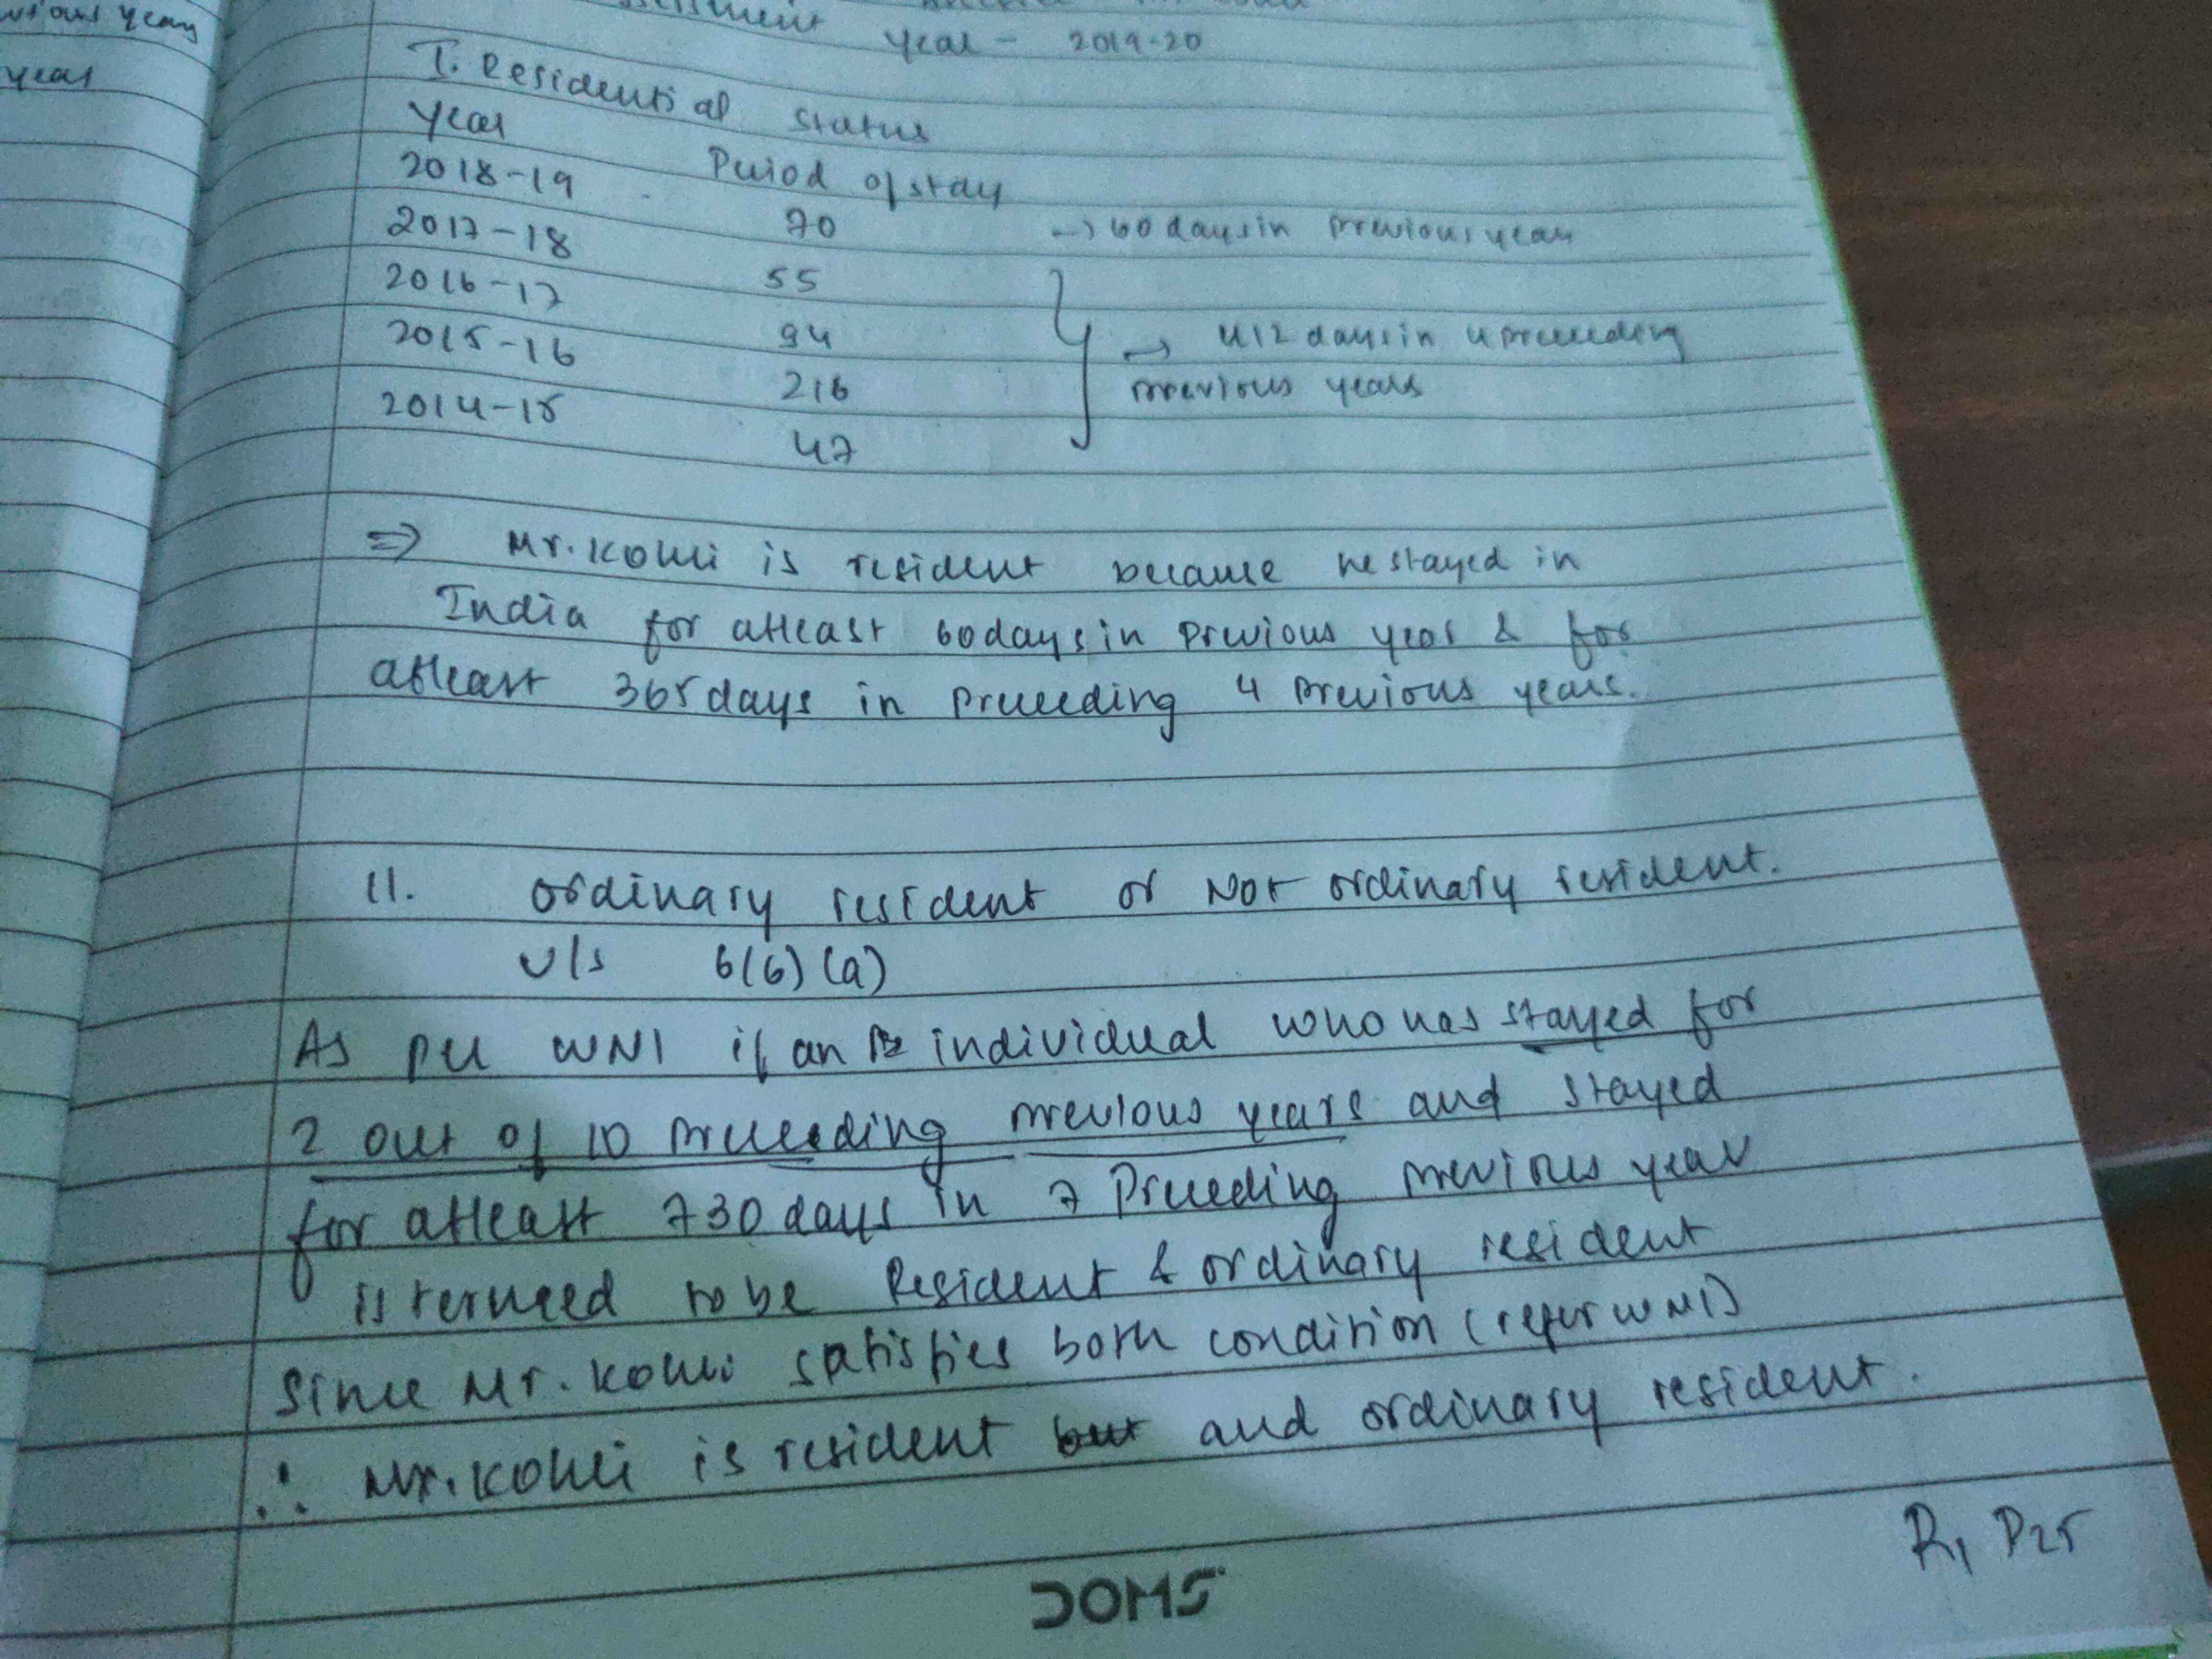 year
year - 2019-20
I. Residential status
Year Period of stay
2018-19 70 → 60 days in previous year
2017-18 55
2016-17 94 → 412 days in 4 preceeding
2015-16 216 previous years
2014-15 47
⇒ Mr. Kohli is resident because he stayed in
India for atleast 60 days in previous year & for
atleast 365 days in preceeding 4 previous years.
II. ordinary resident or Not ordinary resident.
U/s 6(6)(a)
As per WN1 if an individual who has stayed for
2 out of 10 preceeding previous years and stayed
for atleast 730 days in 7 preceeding previous year
is termed to be Resident & ordinary resident
Since Mr. Kohli satisfies both condition (refer WN1)
∴ Mr. Kohli is resident but and ordinary resident.
R1 P25
DOMS